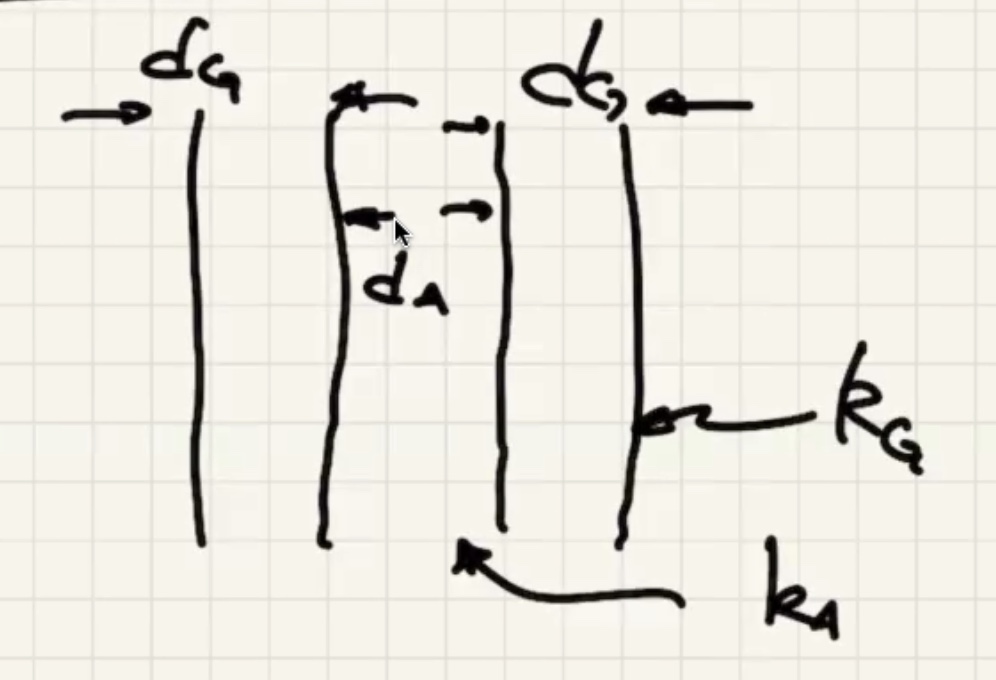 dG dG
dA
kG
kA